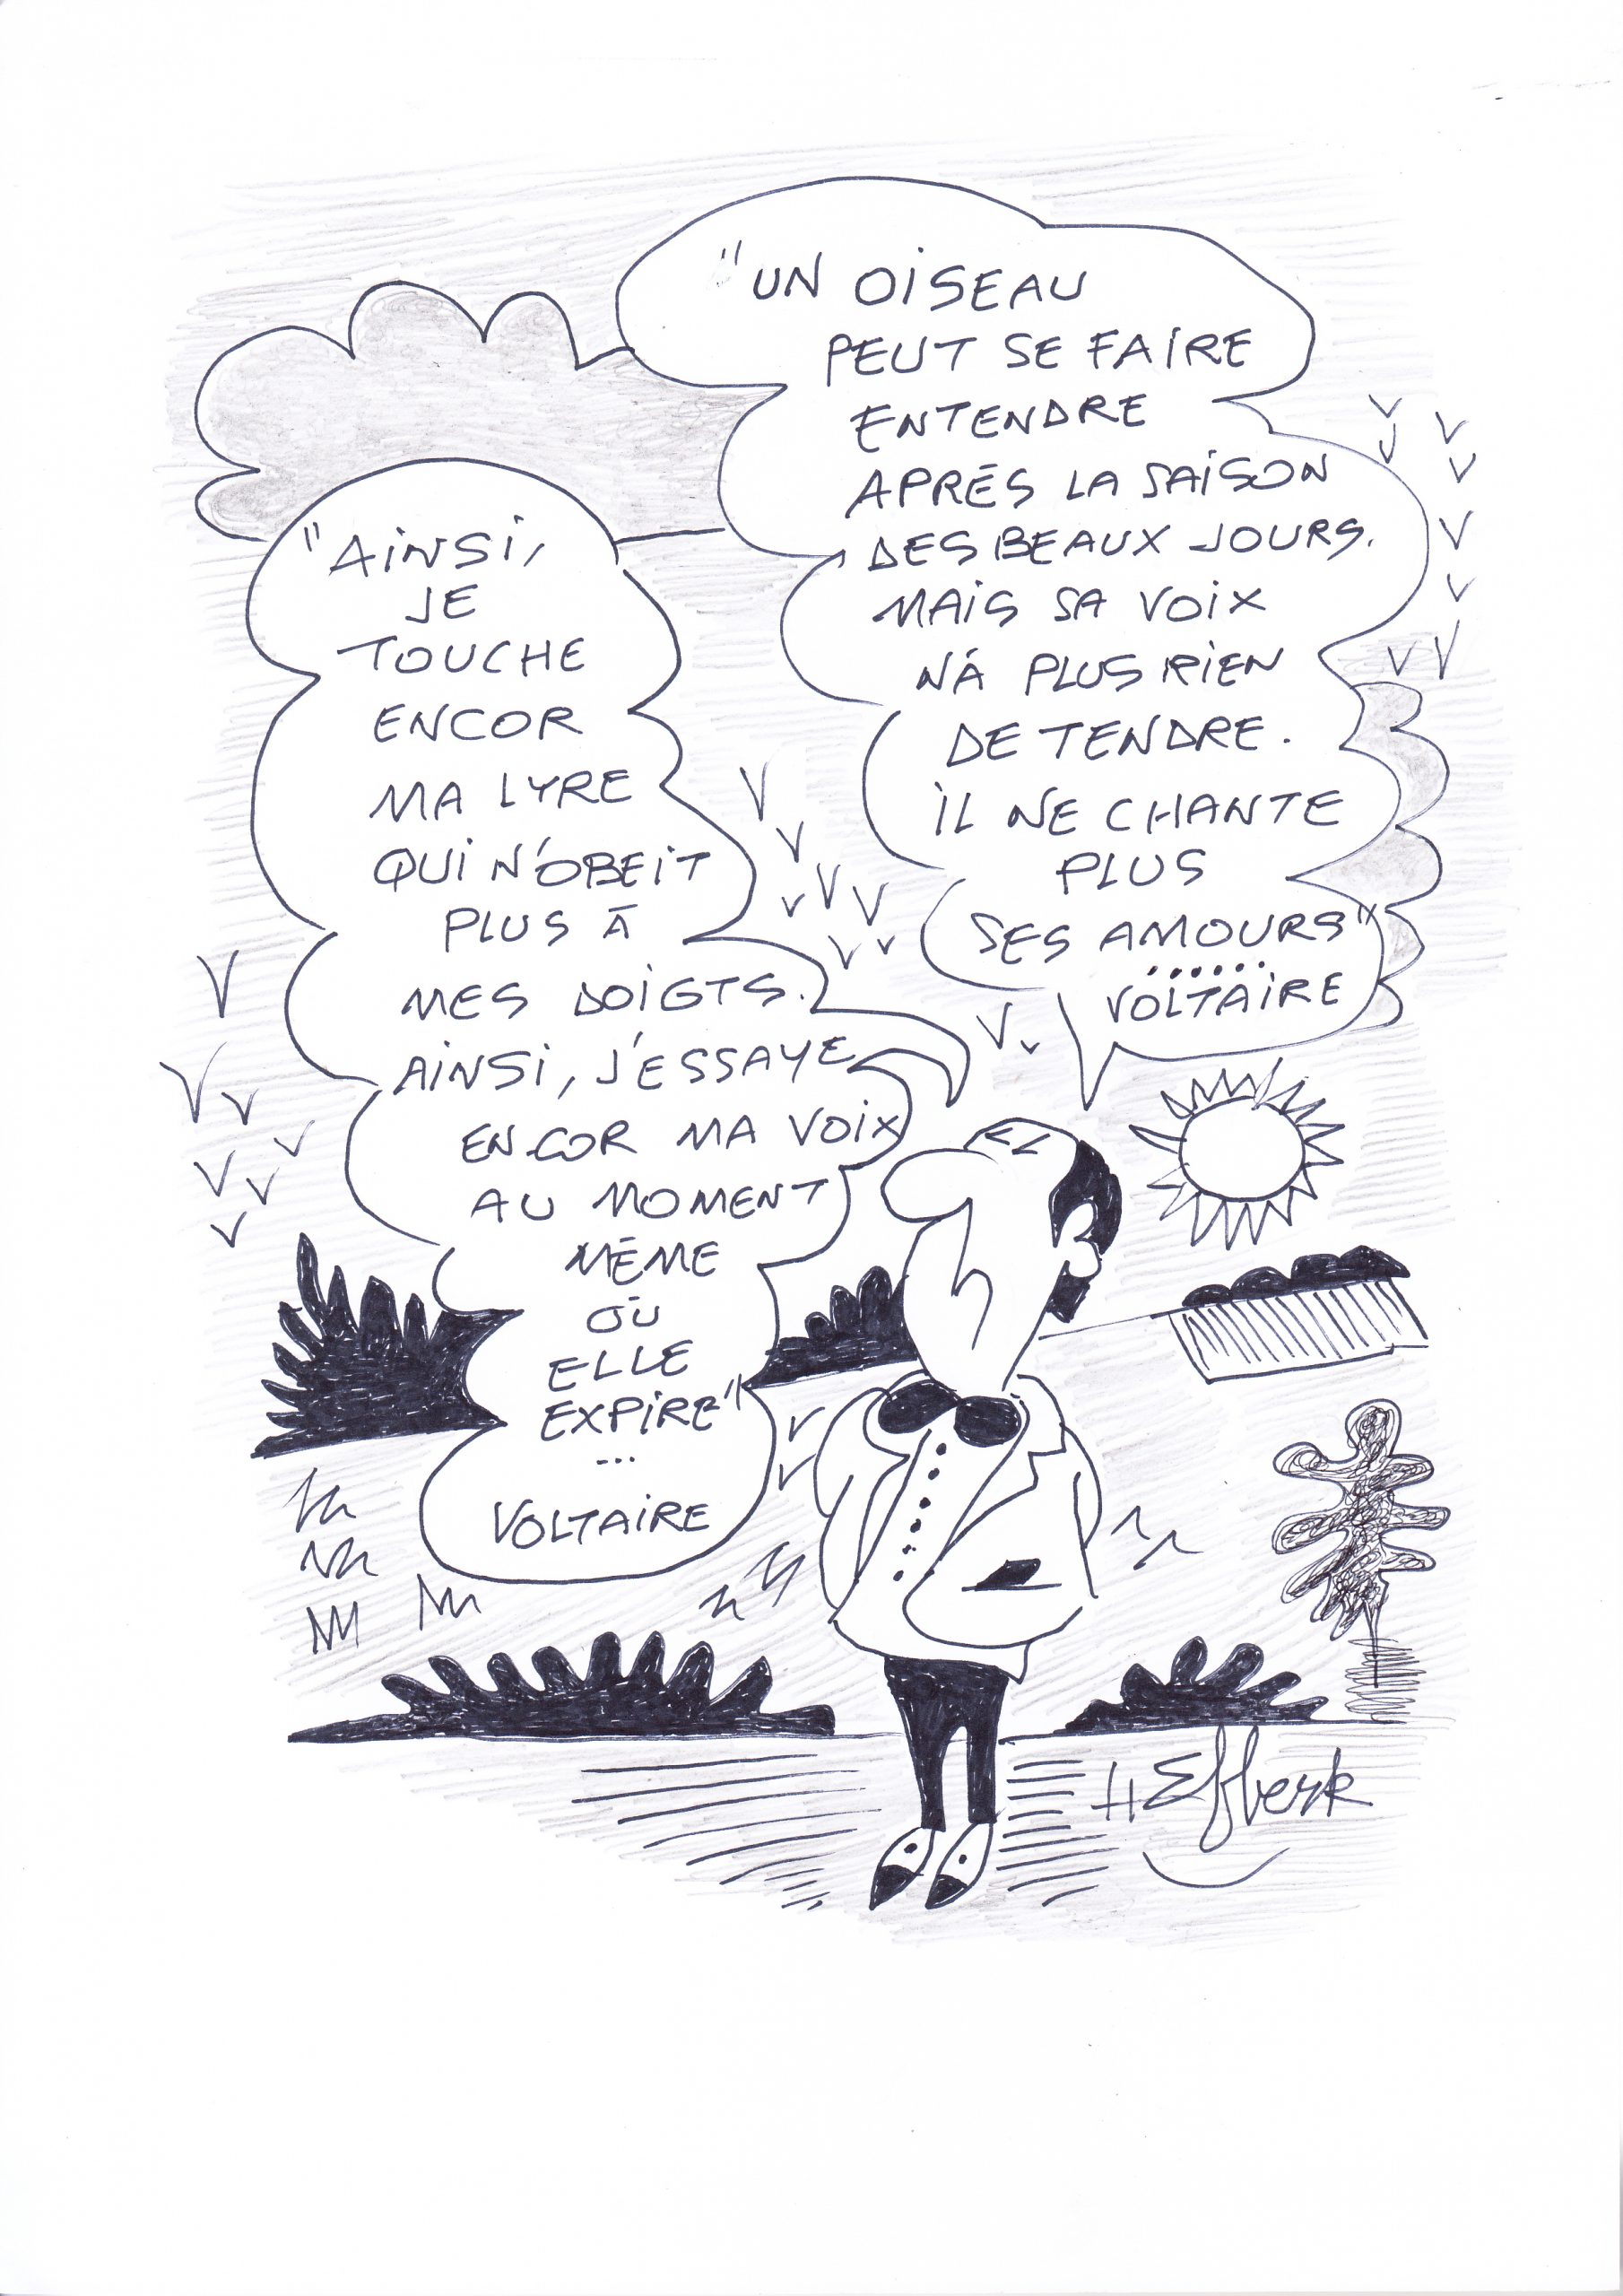 "UN OISEAU
PEUT SE FAIRE
ENTENDRE
APRÉS LA SAISON
DES BEAUX JOURS.
MAIS SA VOIX
N'A PLUS RIEN
DE TENDRE.
IL NE CHANTE
PLUS
SES AMOURS"
......
VOLTAIRE
"AINSI,
JE
TOUCHE
ENCOR
MA LYRE
QUI N'OBEIT
PLUS À
MES DOIGTS.
AINSI, J'ESSAYE
ENCOR MA VOIX
AU MOMENT
MÊME
OÙ
ELLE
EXPIRE"
...
VOLTAIRE